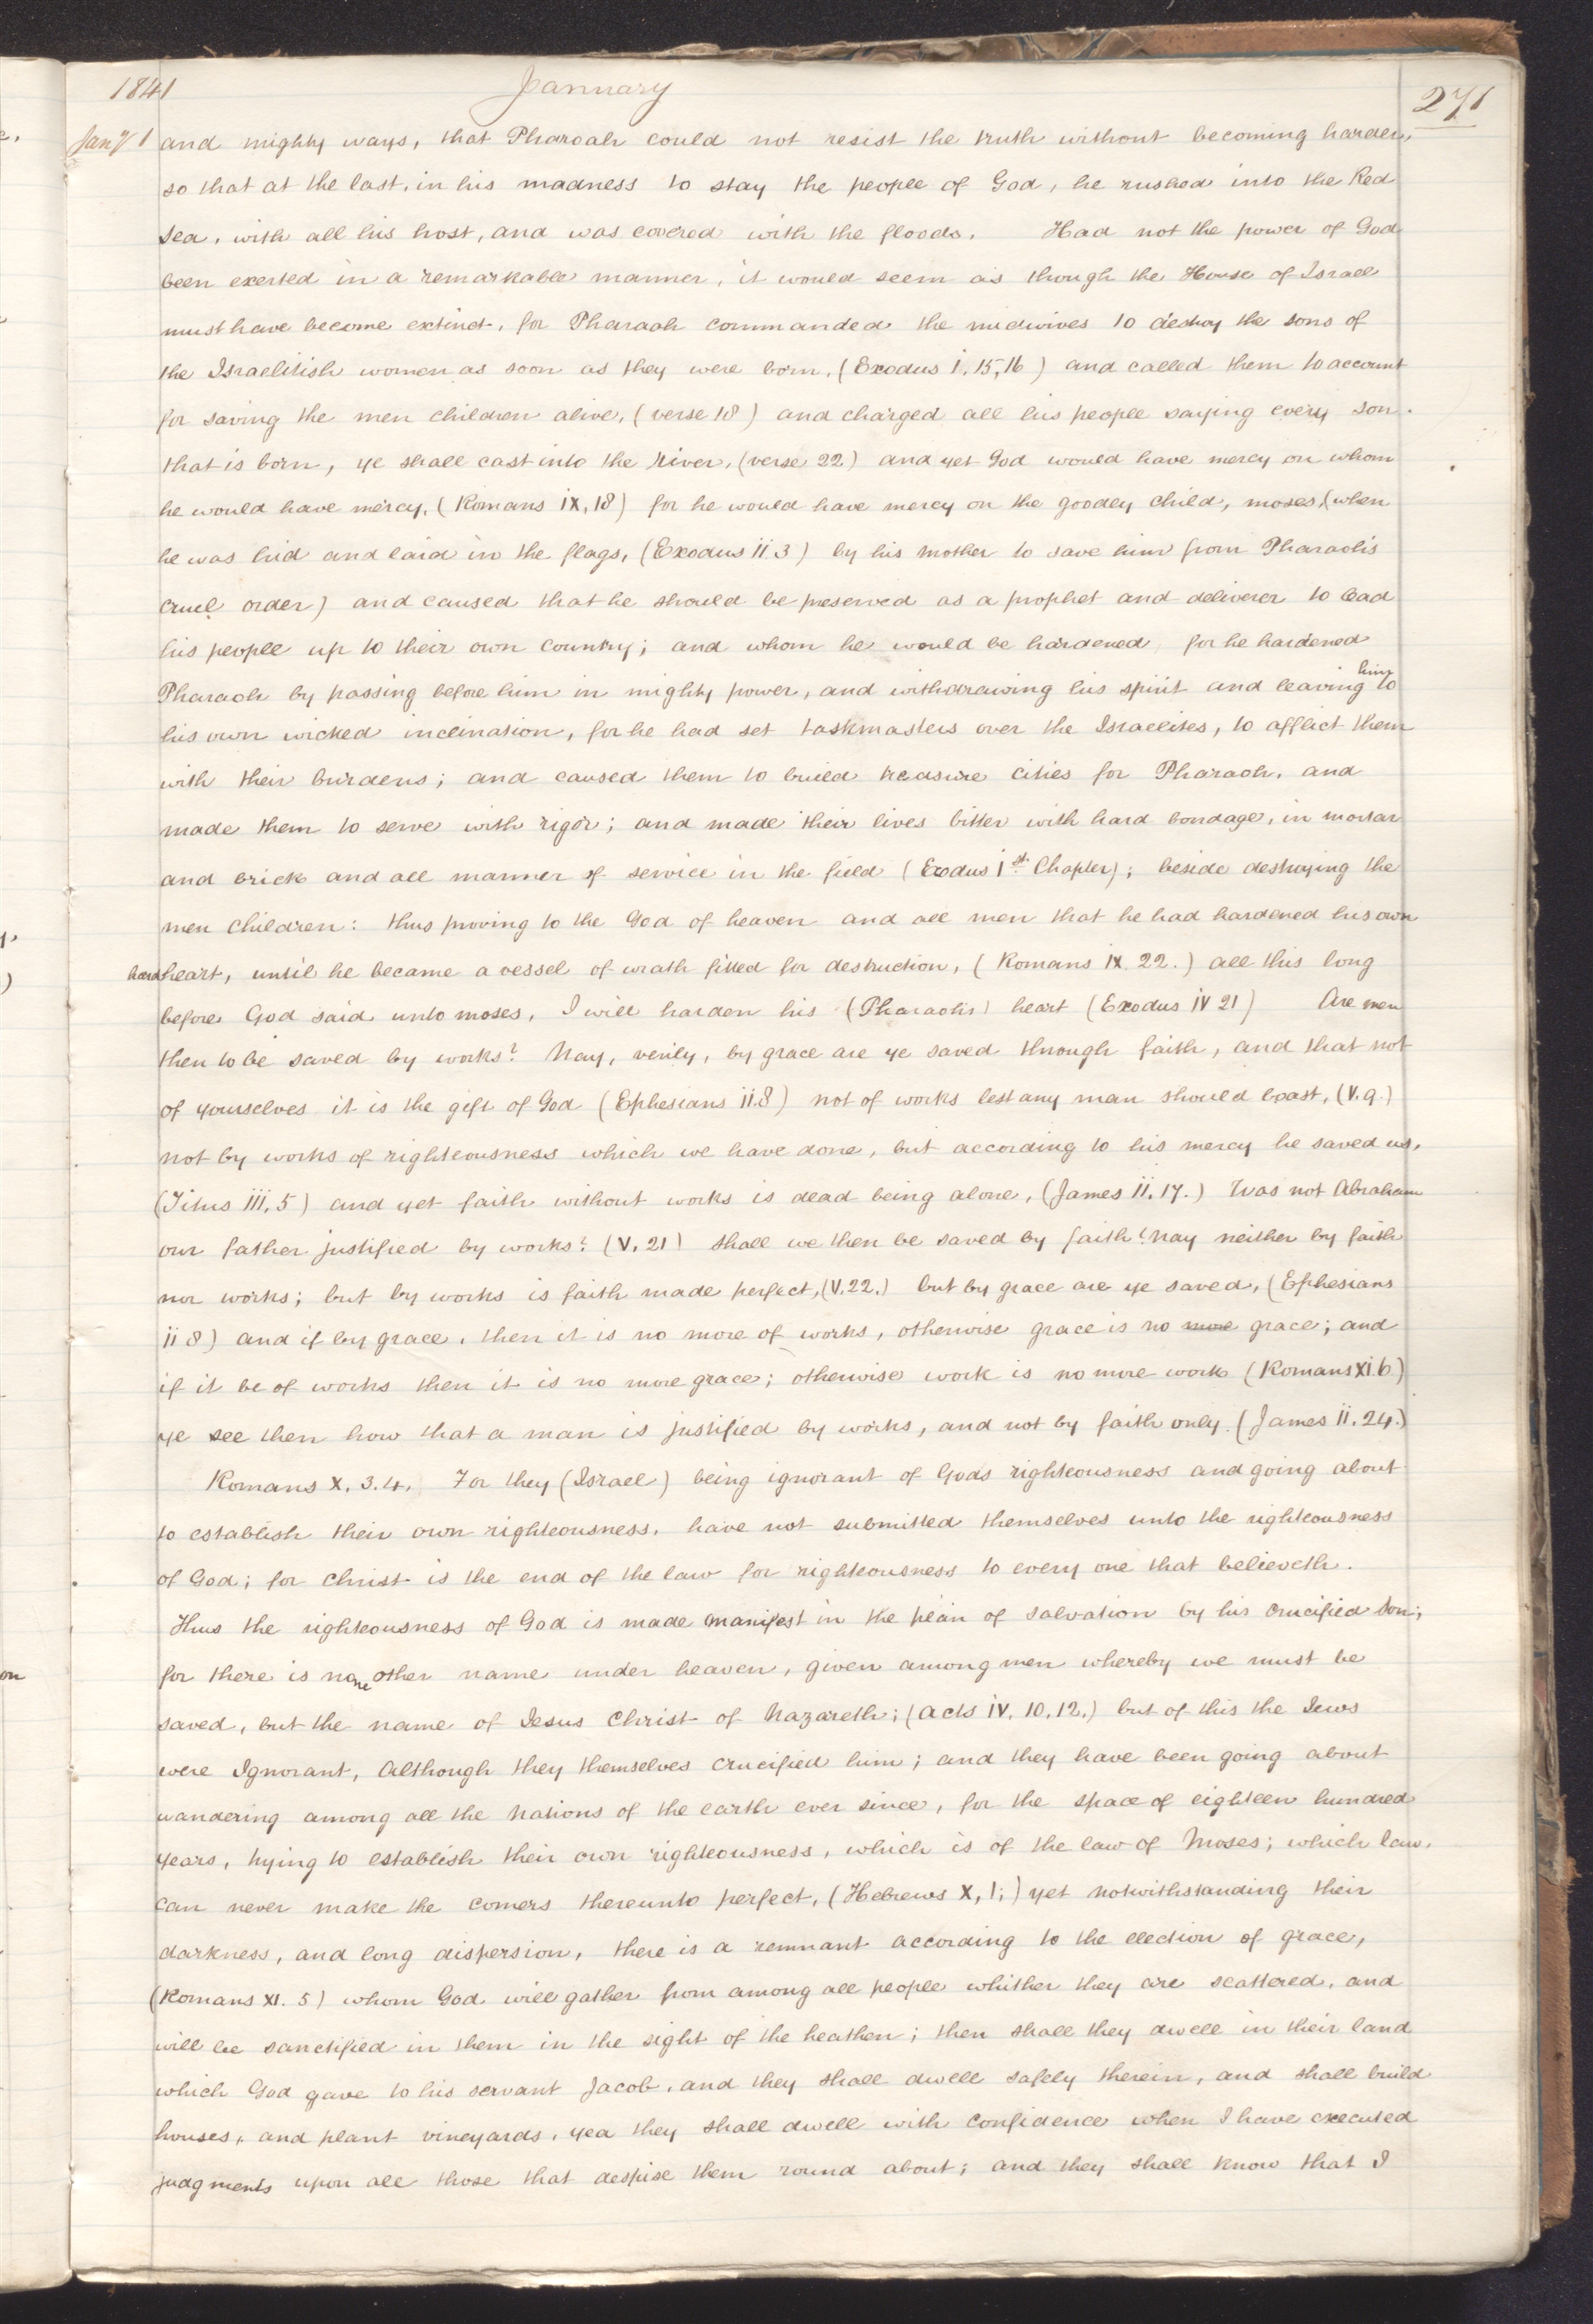 1841 January 271
Jany 1 and mighty ways, that Pharoah could not resist the truth without becoming harder,
so that at the last, in his madness to stay the people of God, he rushed into the Red
Sea, with all his host, and was covered with the floods. Had not the power of God
been exerted in a remarkable manner, it would seem as though the House of Israel
must have become extinct, for Pharaoh commanded the midwives to destroy the sons of
the Israelitish women as soon as they were born, (Exodus i, 15, 16) and called them to account
for saving the men children alive, (verse 18) and charged all his people saying every son
that is born, ye shall cast into the river, (verse 22) and yet God would have mercy on whom
he would have mercy, (Romans ix, 18) for he would have mercy on the goodly child, moses, (when
he was hid and laid in the flags, (Exodus ii. 3) by his mother to save him from Pharaoh's
cruel order) and caused that he should be preserved as a prophet and deliverer to lead
his people up to their own country; and whom he would be hardened, for he hardened
Pharaoh by passing before him in mighty power, and withdrawing his spirit and leaving him to
his own wicked inclination, for he had set taskmasters over the Israelites, to afflict them
with their burdens; and caused them to build treasure cities for Pharaoh, and
made them to serve with rigor; and made their lives bitter with hard bondage, in mortar
and brick and all manner of service in the field (Exodus 1st Chapter); beside destroying the
men children: thus proving to the God of heaven and all men that he had hardened his own
hard heart, until he became a vessel of wrath fitted for destruction, (Romans ix. 22.) all this long
before God said unto moses, I will harden his (Pharaohs) heart (Exodus iv 21) Are men
then to be saved by works? Nay, verily, by grace are ye saved through faith, and that not
of yourselves it is the gift of God (Ephesians ii.8) not of works lest any man should boast, (v.9.)
not by works of righteousness which we have done, but according to his mercy he saved us,
(Titus iii, 5) and yet faith without works is dead being alone, (James ii. 17.) Was not Abraham
our father justified by works? (v. 21) shall we then be saved by faith? Nay neither by faith
nor works; but by works is faith made perfect, (v.22.) but by grace are ye saved, (Ephesians
ii 8) and if by grace, then it is no more of works, otherwise grace is no more grace; and
if it be of works then it is no more grace; otherwise work is no more work (Romans xi.6)
ye see then how that a man is justified by works, and not by faith only. (James ii. 24.)
Romans x. 3.4. For they (Israel) being ignorant of Gods righteousness and going about
to establish their own righteousness, have not submitted themselves unto the righteousness
of God; for Christ is the end of the law for righteousness to every one that believeth.
Thus the righteousness of God is made manifest in the plan of salvation by his crucified Son;
for there is none other name under heaven, given among men whereby we must be
saved, but the name of Jesus Christ of Nazareth; (Acts iv. 10, 12.) but of this the Jews
were Ignorant, Although they themselves crucified him; and they have been going about
wandering among all the Nations of the earth ever since, for the space of eighteen hundred
years, trying to establish their own righteousness, which is of the law of Moses; which law,
can never make the comers thereunto perfect, (Hebrews x, 1;) yet notwithstanding their
darkness, and long dispersion, there is a remnant according to the election of grace,
(Romans xi. 5) whom God will gather from among all people whither they are scattered, and
will be sanctified in them in the sight of the heathen; then shall they dwell in their land
which God gave to his servant Jacob, and they shall dwell safely therein, and shall build
houses, and plant vineyards, yea they shall dwell with confidence when I have executed
judgments upon all those that despise them round about; and they shall know that I